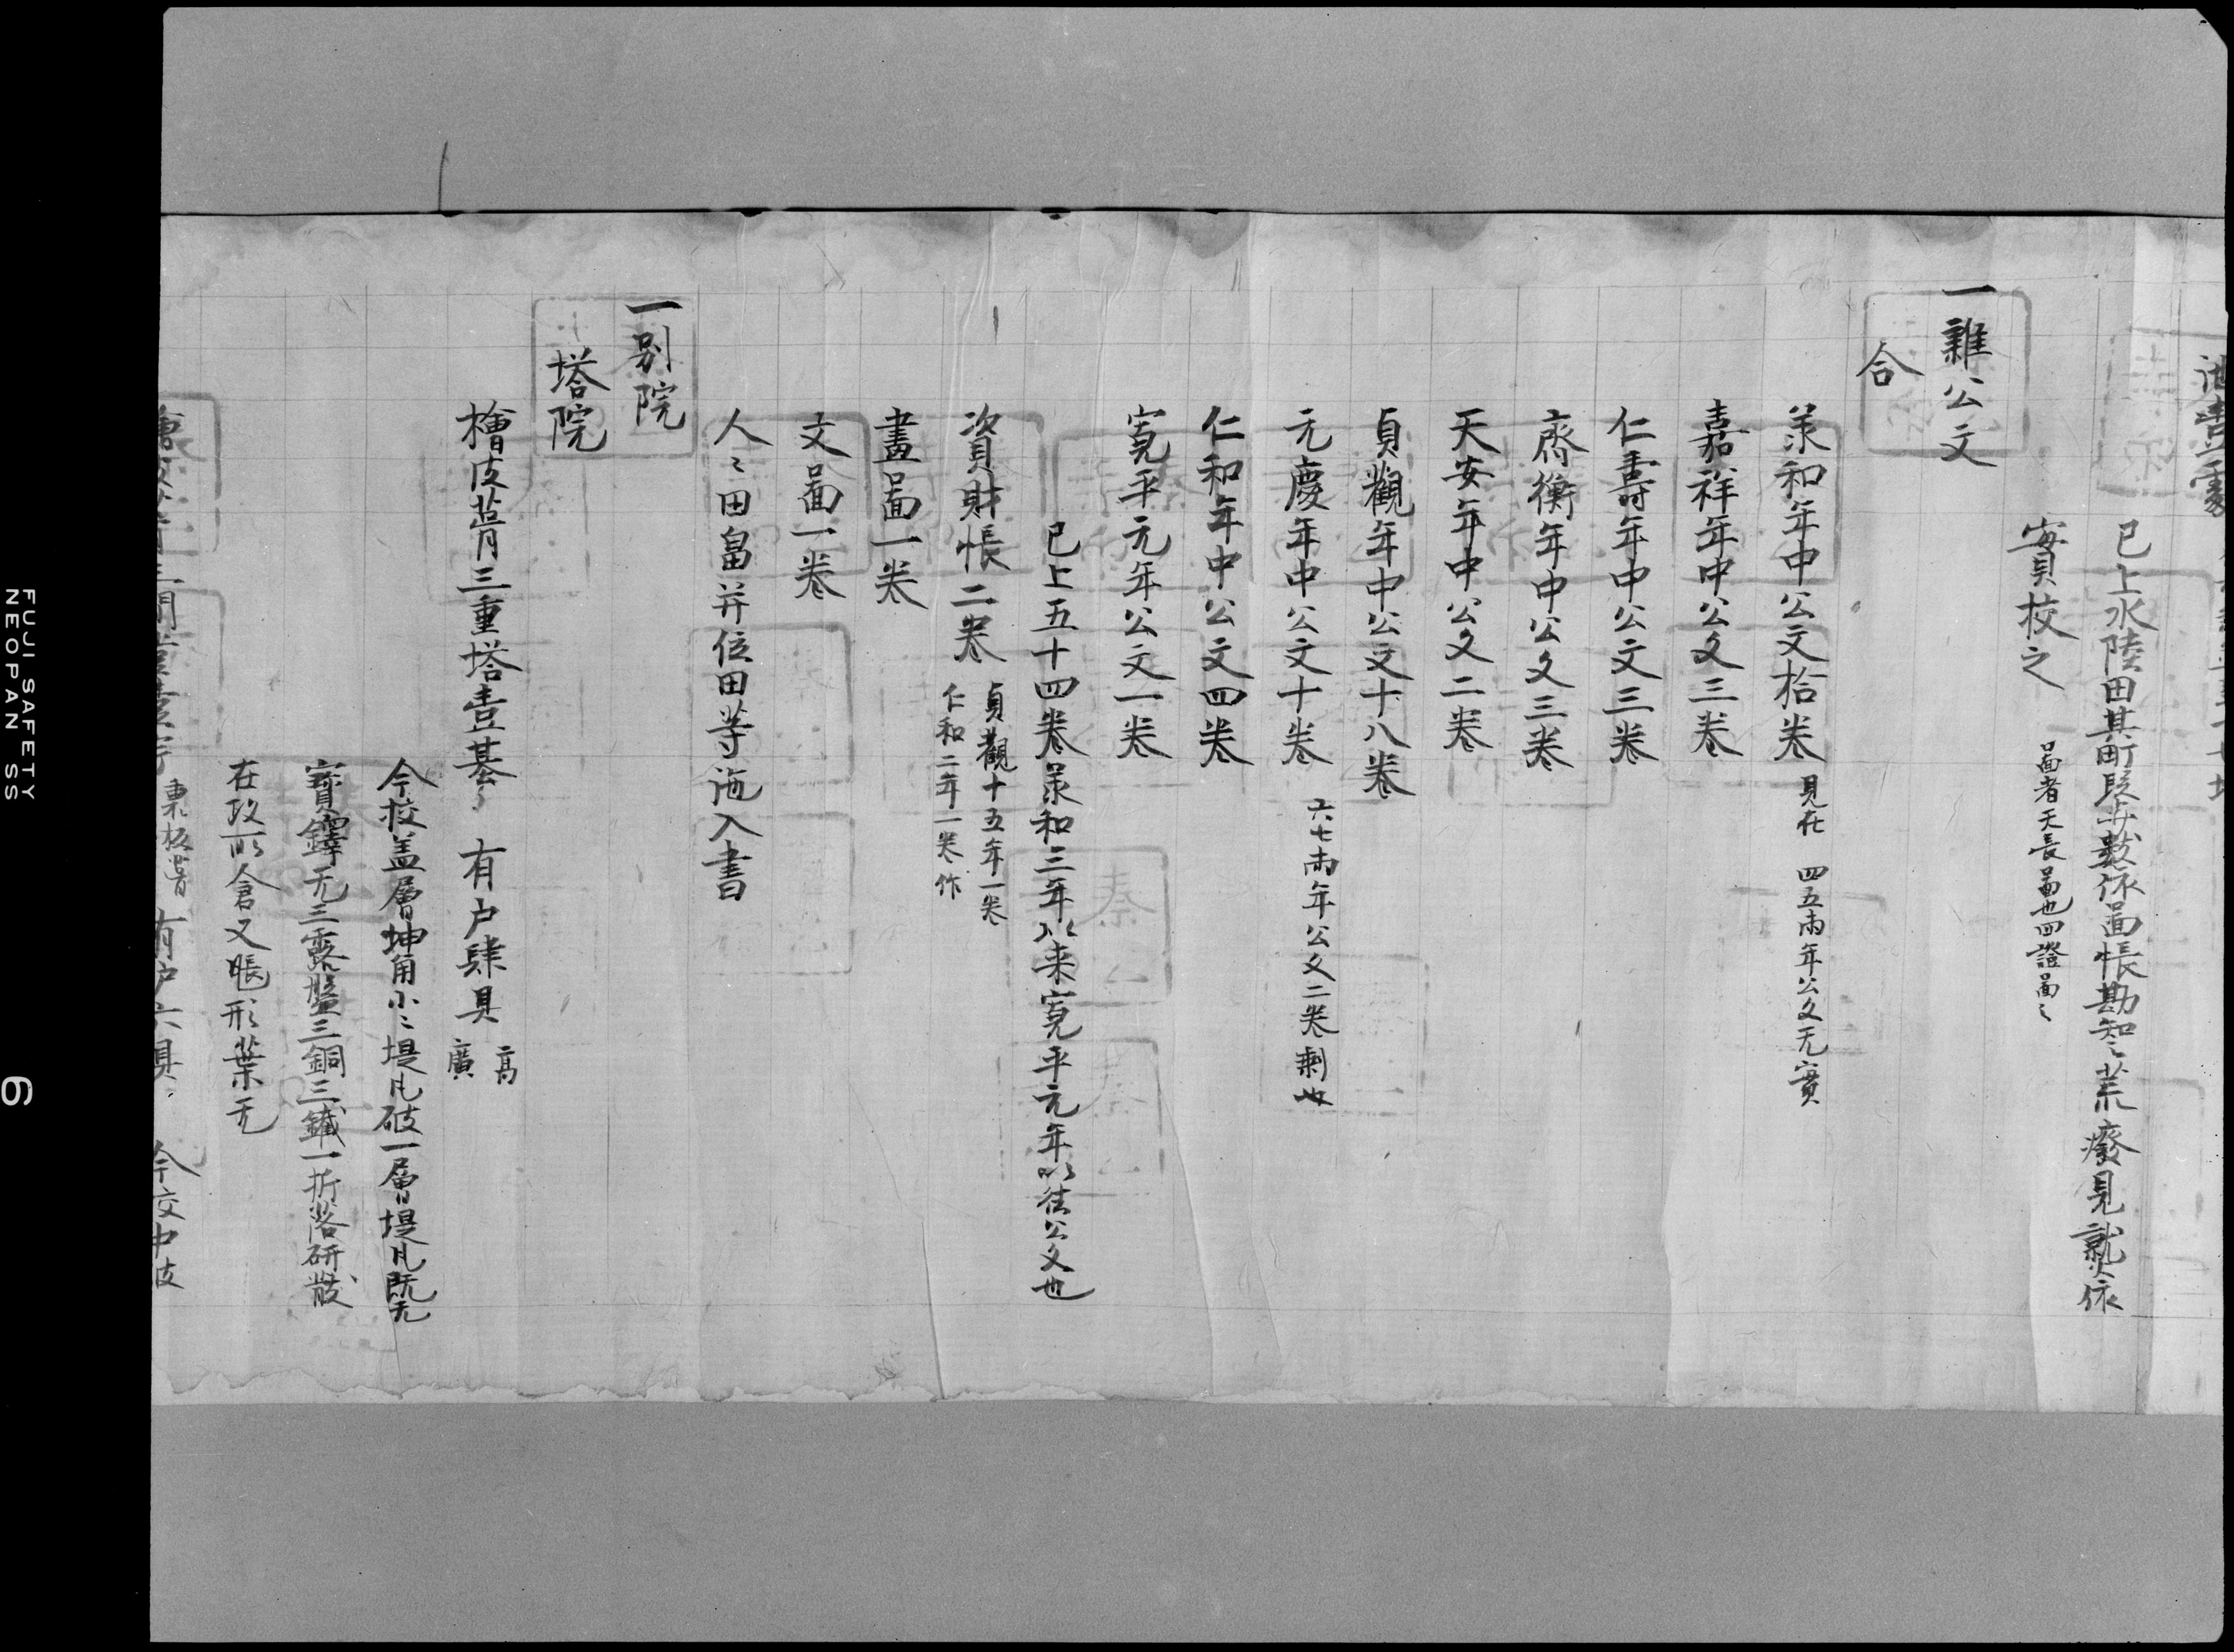 池壹處
已上水陸田其町段步數依啚帳勘知之荒癈見熟依
實校之 啚者天長啚也四證啚之
一雜公文
合
羕和年中公文拾卷 見在 四五兩年公文无實
嘉祥年中公文三卷
仁壽年中公文三卷
齊衡年中公文三卷
天安年中公文二卷
貞觀年中公文十八卷
元慶年中公文十卷 六七兩年公文二卷剩也
仁和年中公文四卷
寛平元年公文一卷
已上五十四卷羕和三年以来寛平元年以往公文也
資財帳二卷 貞觀十五年一卷
仁和二年一卷作
畫啚一卷
文啚一卷
人〻田畠并位田等施入書
一別院
塔院
檜皮葺三重塔壹基 有户肆具 高
廣
今校盖層坤角小〻堤凡破一層堤凡既无
寶鐸无三露盤三銅三鐵一折落研散
在政所倉又帳形葉无
東板葺 有户六具 今校中破
FUJI SAFETY
NEOPAN SS
6